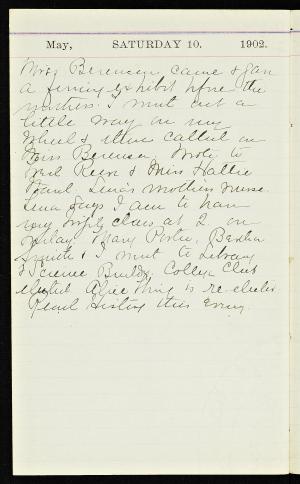 May, SATURDAY 10. 1902.
Miss Berenson came & gave
a fencing exhibit before the
mothers. I went out a
little way on my
wheel & then called on
Miss Berenson. Wrote to
and Miss Hallie
Lena's mother's nurse.
Lena says I am to have
my class at 2 on
Friday. Mary Porter, Bertha
& I went to Library
& Science Buildg. College Club
elected Alice is re-elected
Pearl this Evng.